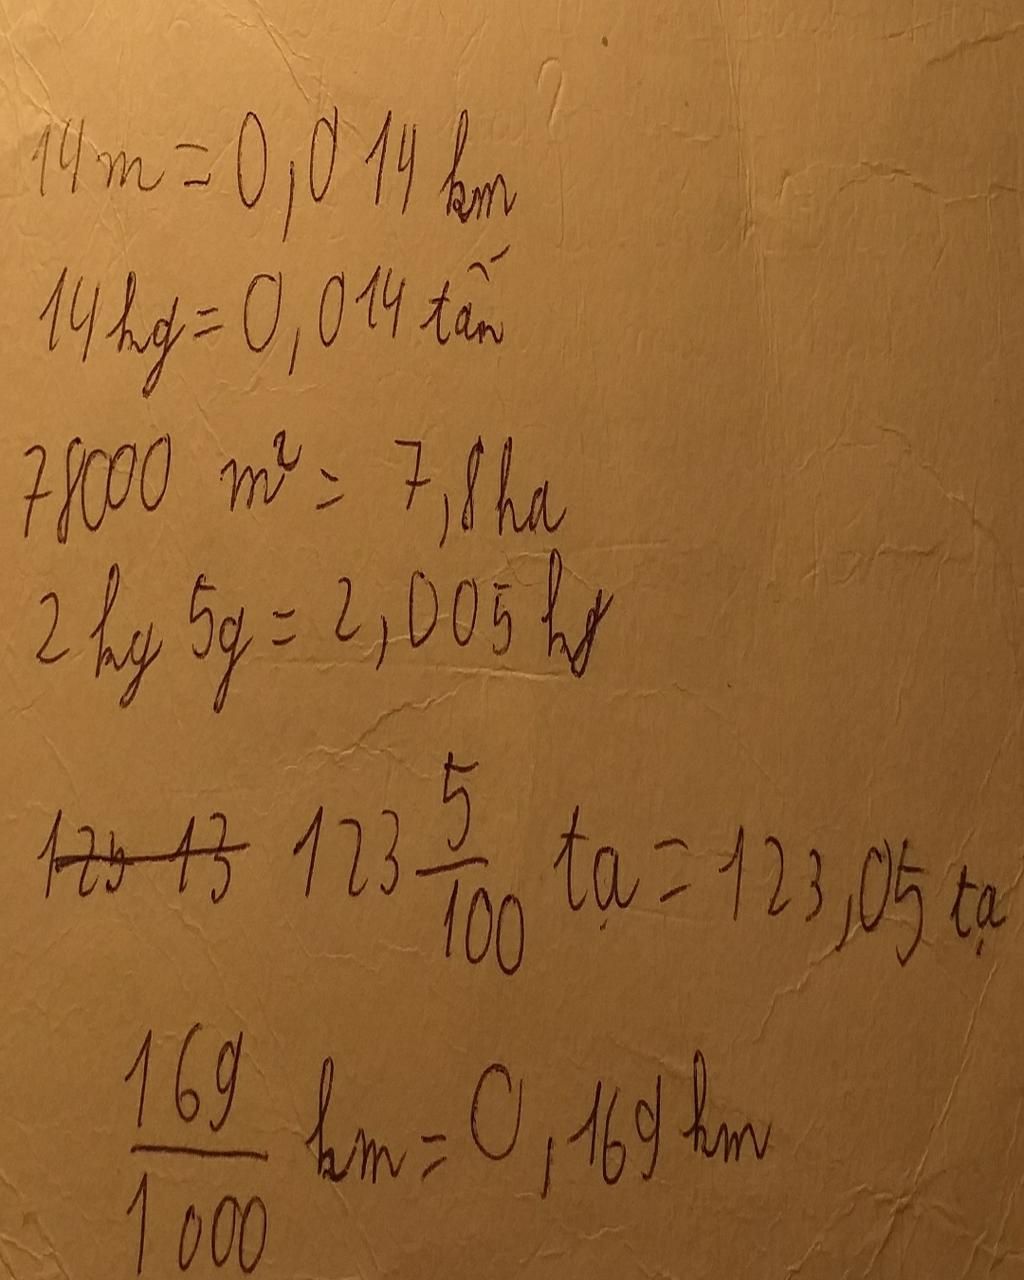 14m = 0,014 km
14kg = 0,014 tấn
78000 m² = 7,8ha
2 kg 5g = 2,005 kg
123 5/100 tạ = 123,05 tạ
169/1000 km = 0,169 km